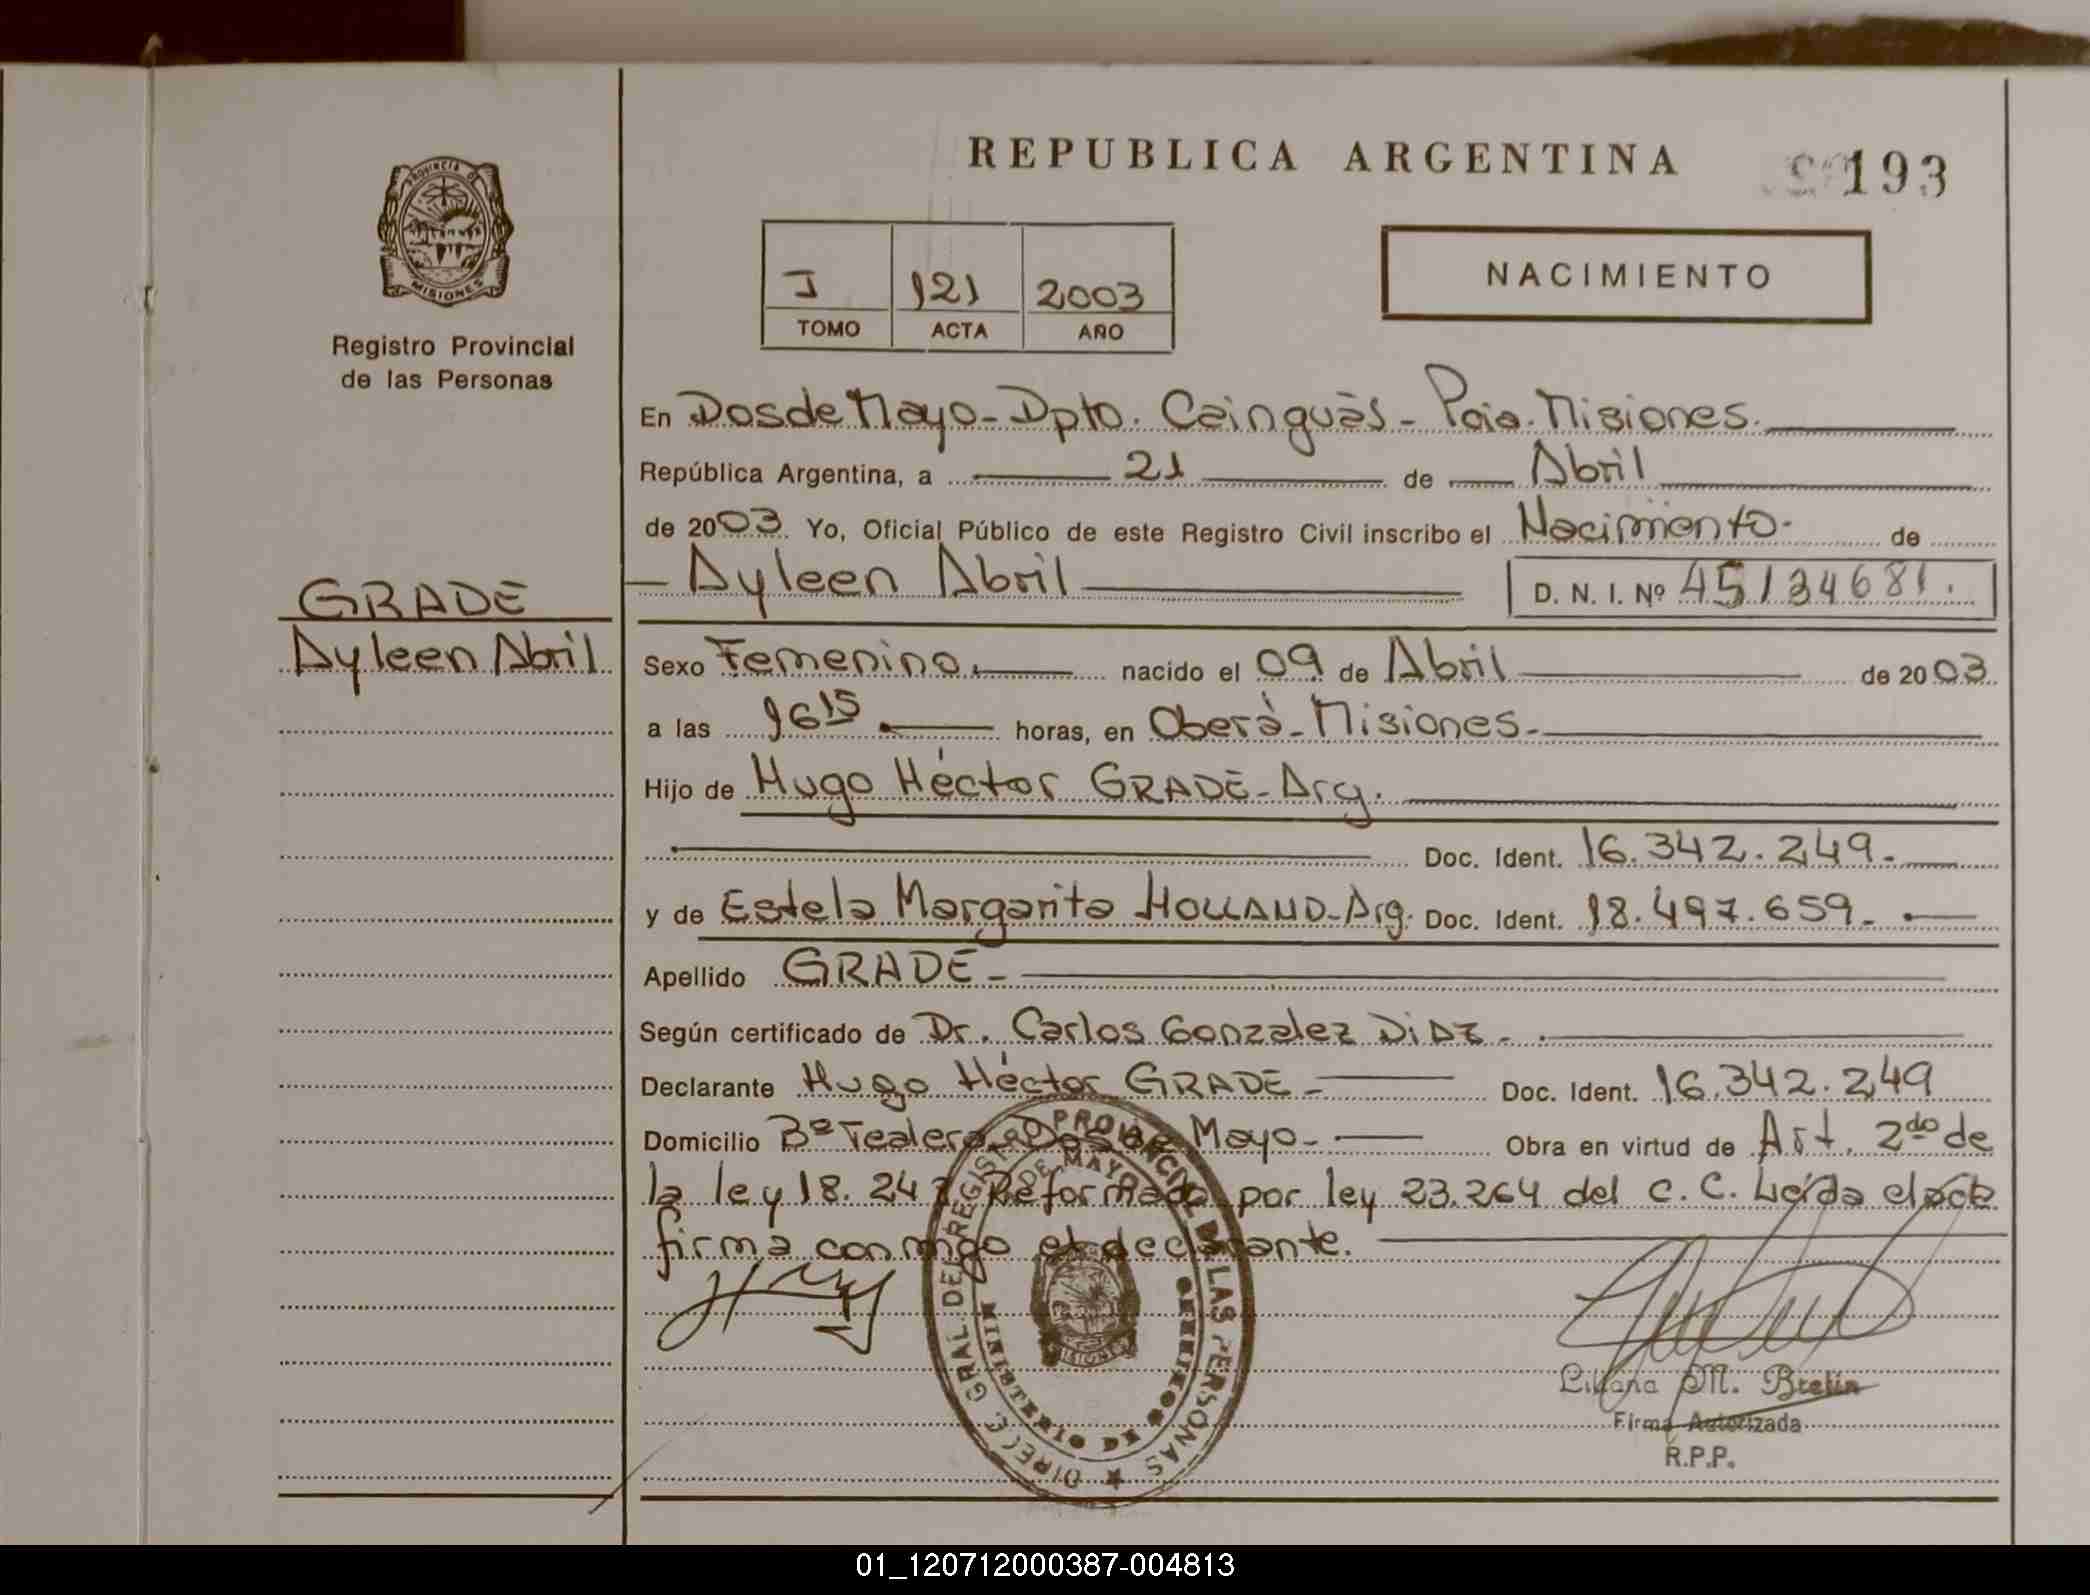 REPUBLICA ARGENTINA
193
PROVINCIA D
MISIONES
Registro Provincial
de las Personas
NACIMIENTO
I 121 2003
TOMO ACTA AÑO
En Dos de Mayo - Dpto. Cainguàs - Pcia. Misiones.
República Argentina, a 21 de Abril
de 2003. Yo, Oficial Público de este Registro Civil inscribo el Nacimiento. de
Ayleen Abril D. N. I. Nº 45134681.
GRADE
Ayleen Abril
Sexo Femenino. nacido el 09 de Abril de 2003
a las 16 15 horas, en Oberà - Misiones.
Hijo de Hugo Héctor GRADE - Arg.
Doc. Ident. 16.342.249.
y de Estela Margarita HOLLAND - Arg. Doc. Ident. 18.497.659.
Apellido GRADE -
Según certificado de Dr. Carlos Gonzalez DiAz -
Declarante Hugo Héctor GRADE - Doc. Ident. 16.342.249
Domicilio Bº Tealera - Dos de Mayo - Obra en virtud de Art. 2do de
la ley 18.24 Reformado por ley 23.264 del C.C. Leída el acta
firma conmigo el declarante.
DIREC. GRAL. DEL REGISTRO PROVINCIAL DE LAS PERSONAS
DE MAYO
MINISTERIO DE GOBIERNO
MISIONES
Liliana M. Brelin
Firma Autorizada
R.P.P.
01_120712000387-004813